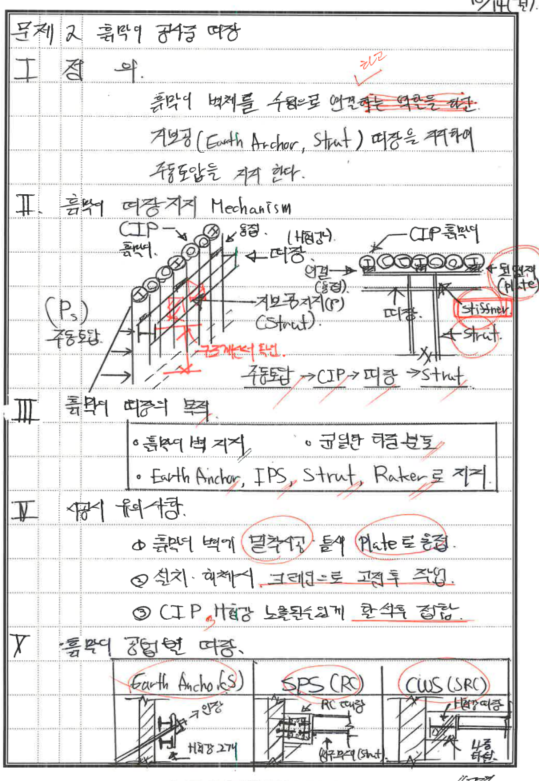 10/14(월).
문제 2 흙막이 공사용 띠장
I 정 의.
하고
흙막이 벽체를 수평으로 연결하는 역할을 하는
지보공(Earth Anchor, Strut) 띠장을 지지하여
주동토압을 지지 한다.
II. 흙막이 띠장지지 Mechanism
CIP
흙막이
용접
(H형강).
띠장
지보공지지(P)
(Strut).
(Ps)
주동토압
CIP 흙막이
연결
(용접)
(Plate)
띠장
Stiffner
Strut.
주동토압 → CIP → 띠장 → Strut
III 흙막이 띠장의 목적
• 흙막이 벽 지지 • 균일한 하중 분포
• Earth Anchor, IPS, Strut, Raker로 지지
IV 시공시 유의사항.
① 흙막이 벽에 밀착시공 틈새 Plate로 용접.
② 설치·해체시 크레인으로 고정후 작업.
③ CIP, H형강 노출된수있게 할석후 접합.
V 흙막이 공법별 띠장.
Earth Anchor(S) SPS (RC) CWS (SRC)
인장
H형강 2개
RC 띠장
(Strut)
H형강띠장